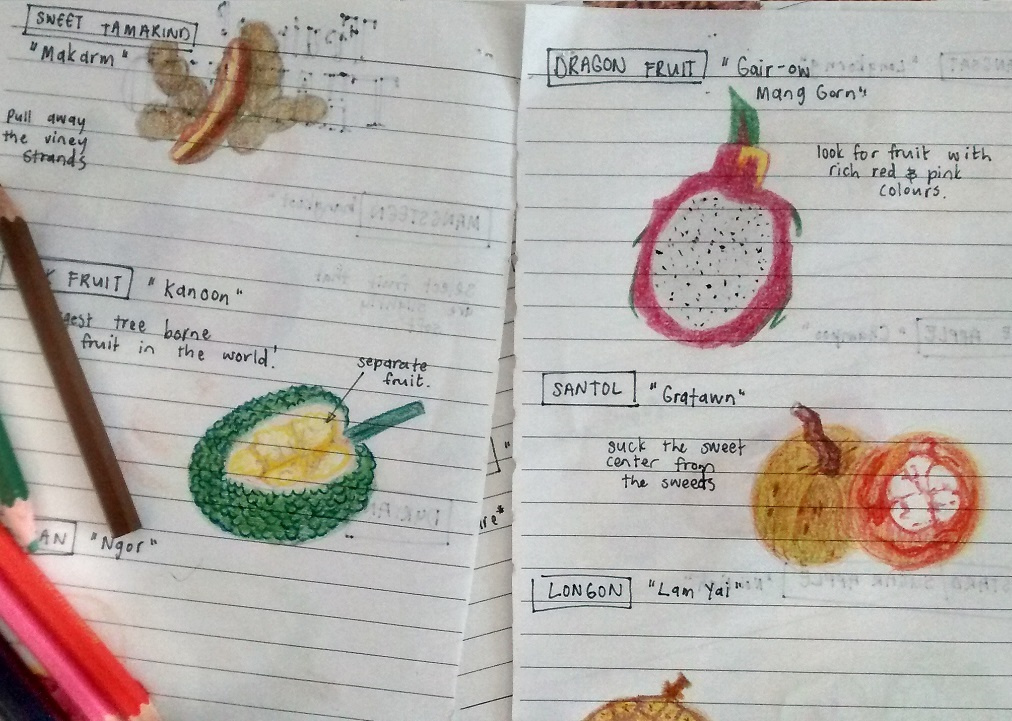 SWEET TAMARIND
"Makarm"
Pull away
the viney
strands
FRUIT "Kanoon"
tree borne
fruit in the world.'
separate
fruit.
AN "Ngor"
DRAGON FRUIT "Gair-ow
Mang Gorn"
look for fruit with
rich red & pink
colours.
SANTOL "Gratawn"
suck the sweet
center from
the sweeds
LONGON "Lam Yai"